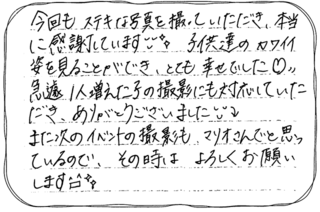 今回も ステキな写真を撮っていただき、本当
に感謝しています◡̈♡ 子供達の カワイイ
姿を見ることができ、とても 幸せでした♡〃
急遽 1人増えた子の撮影にも対応していた
だき、ありがとうございました◡̈♪
また次のイベントの撮影も、マリオさんでと思っ
ているので、その時は よろしくお願い
します◡̈♡